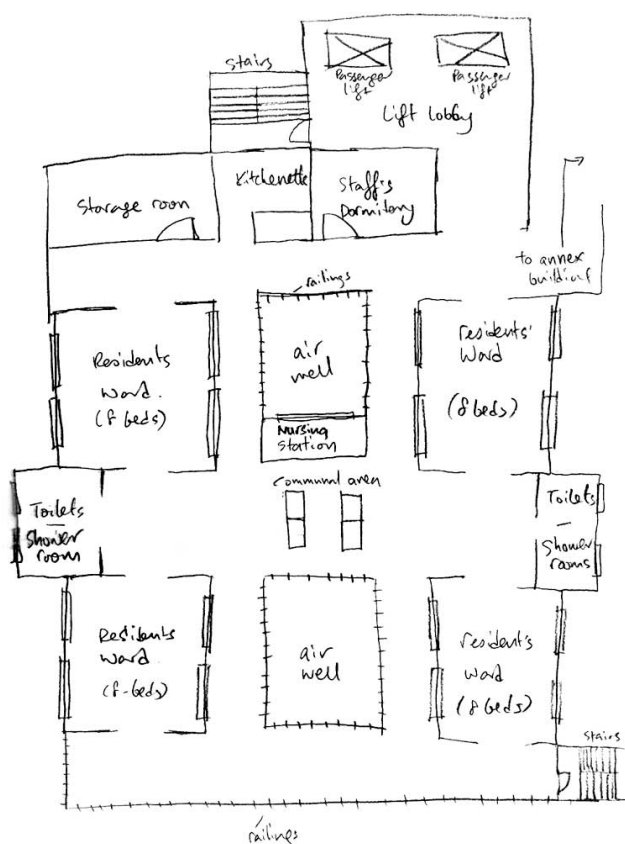 stairs
Passenger
lift
Passenger
lift
Lift lobby
Storage room
Kitchenette
Staff's
Dormitory
to annex
building
railings
Residents
Ward.
(8 beds)
air
well
Nursing
Station
residents'
Ward
(8 beds)
Communal area
Toilets
—
Shower
room
Toilets
—
Shower
rooms
Residents
Ward.
(8-beds)
air
well
resident's
Ward
(8 beds)
Stairs
railings